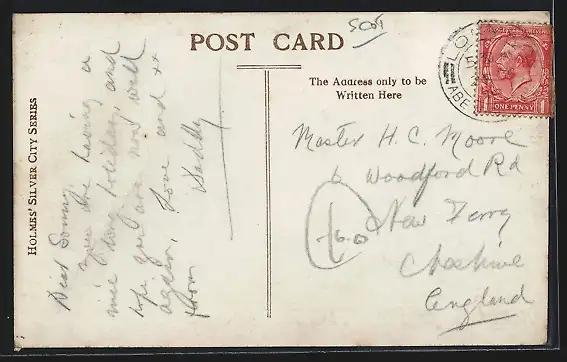 SCOT
POST CARD
The Address only to be
Written Here
HOLMES' SILVER CITY SERIES
Dear Sonny,
you are having a
nice long holiday, and
hope you are now well
again, Love and xx
from Daddy
Master H. C. Moore
6 Woodford Rd
New Ferry
Cheshire
England
ONE PENNY
1 1
LO
ABE